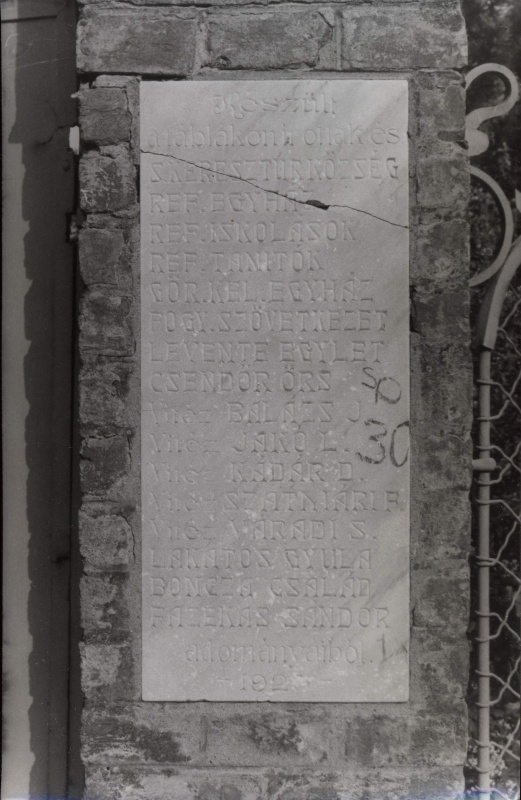 Készült
a táblákont. ottak és
S.KERESZTÚR KÖZSÉG
REF. EGYHÁZ
REF. ISKOLÁSOK
REF. TANITÓK
GÖR. KEL. EGYHÁZ
FOGY. SZÖVETKEZET
LEVENTE EGYLET
CSENDŐR ŐRS
Vitéz BALÁZS J.
Vitéz JAKÓ L.
Vitéz KÁDÁR D.
Vitéz SZATMÁRI A
Vitéz VÁRADI S.
LAKATOS GYULA
BONCZA CSALÁD
FAZEKAS SÁNDOR
adományaiból.
30